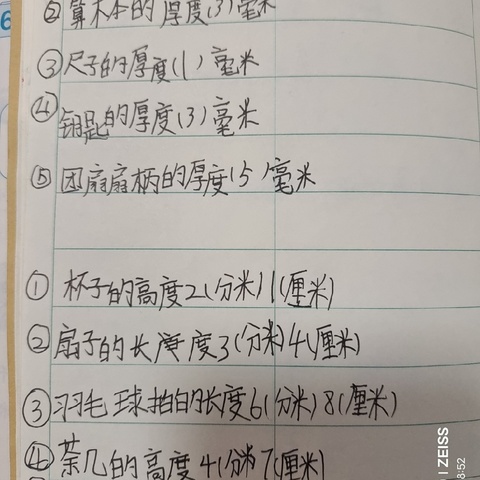 ②算术本的厚度(3)毫米
③尺子的厚度(1)毫米
④钥匙的厚度(3)毫米
⑤团扇扇柄的厚度(5)毫米
①杯子的高度2(分米)1(厘米)
②扇子的长度3(分米)4(厘米)
③羽毛球拍的长度6(分米)8(厘米)
④茶几的高度4(分米)7(厘米)
ZEISS
8:52